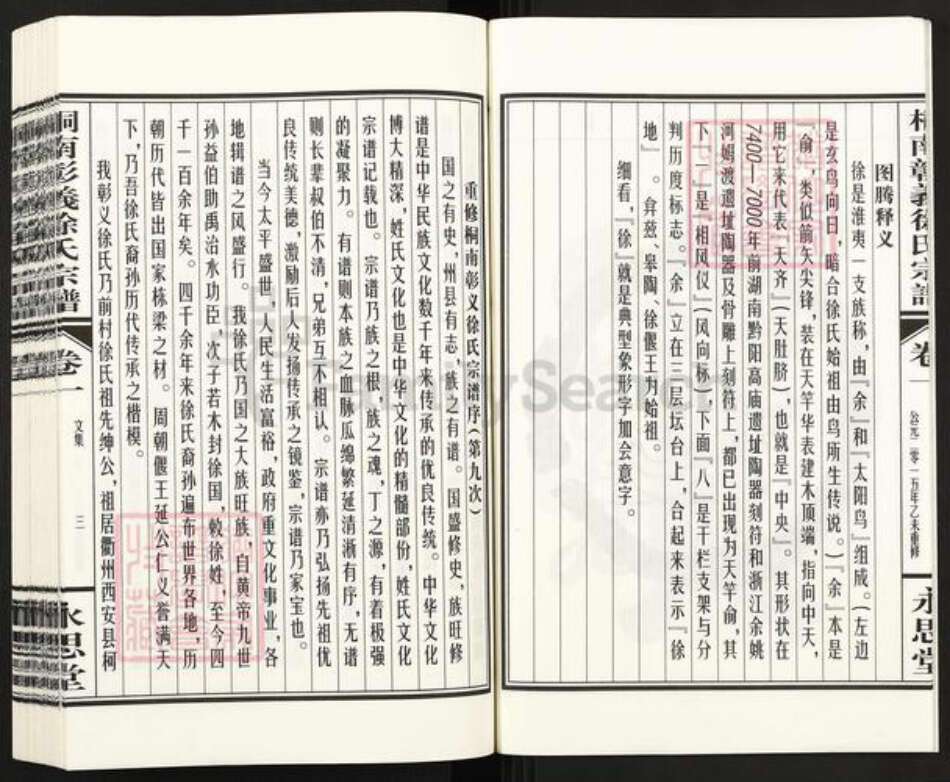 桐南彰義徐氏宗譜
卷一
公元二零一五年乙未重修
永思堂
图腾释义
徐是淮夷一支族称，由『余』和『太阳鸟』组成。（左边
是玄鸟向日，暗合徐氏始祖由鸟所生传说。）『余』本是
『俞』，类似箭矢尖锋，装在天竿华表建木顶端，指向中天，
用它来代表『天齐』（天肚脐），也就是『中央』。其形状在
7400—7000年前湖南黔阳高庙遗址陶器刻符和浙江余姚
河姆渡遗址陶器及骨雕上刻符上，都已出现为天竿俞，其
下『二』是『相风仪』（风向标），下面『八』是干栏支架与分
判历度标志。『余』立在三层坛台上，合起来表示『徐
地』。弇兹、皋陶、徐偃王为始祖。
细看，『徐』就是典型象形字加会意字。
重修桐南彰义徐氏宗谱序（第九次）
国之有史，州县有志，族之有谱。国盛修史，族旺修
谱是中华民族文化数千年来传承的优良传统。中华文化
博大精深，姓氏文化也是中华文化的精髓部份，姓氏文化
宗谱记载也。宗谱乃族之根，族之魂，丁之源，有着极强
的凝聚力。有谱则本族之血脉瓜绵繁延清渐有序，无谱
则长辈叔伯不清，兄弟互不相认。宗谱亦乃弘扬先祖优
良传统美德，激励后人发扬传承之镜鉴，宗谱乃家宝也。
当今太平盛世，人民生活富裕，政府重文化事业，各
地辑谱之风盛行。我徐氏乃国之大族旺族，自黄帝九世
孙益伯助禹治水功臣，次子若木封徐国，敕徐姓，至今四
千一百余年矣。四千余年来徐氏裔孙遍布世界各地，历
朝历代皆出国家栋梁之材。周朝偃王延公仁义誉满天
下，乃吾徐氏裔孙历代传承之楷模。
我彰义徐氏乃前村徐氏祖先绅公，祖居衢州西安县柯
桐南彰義徐氏宗譜
卷一
文集
三
永思堂
FamilySearch